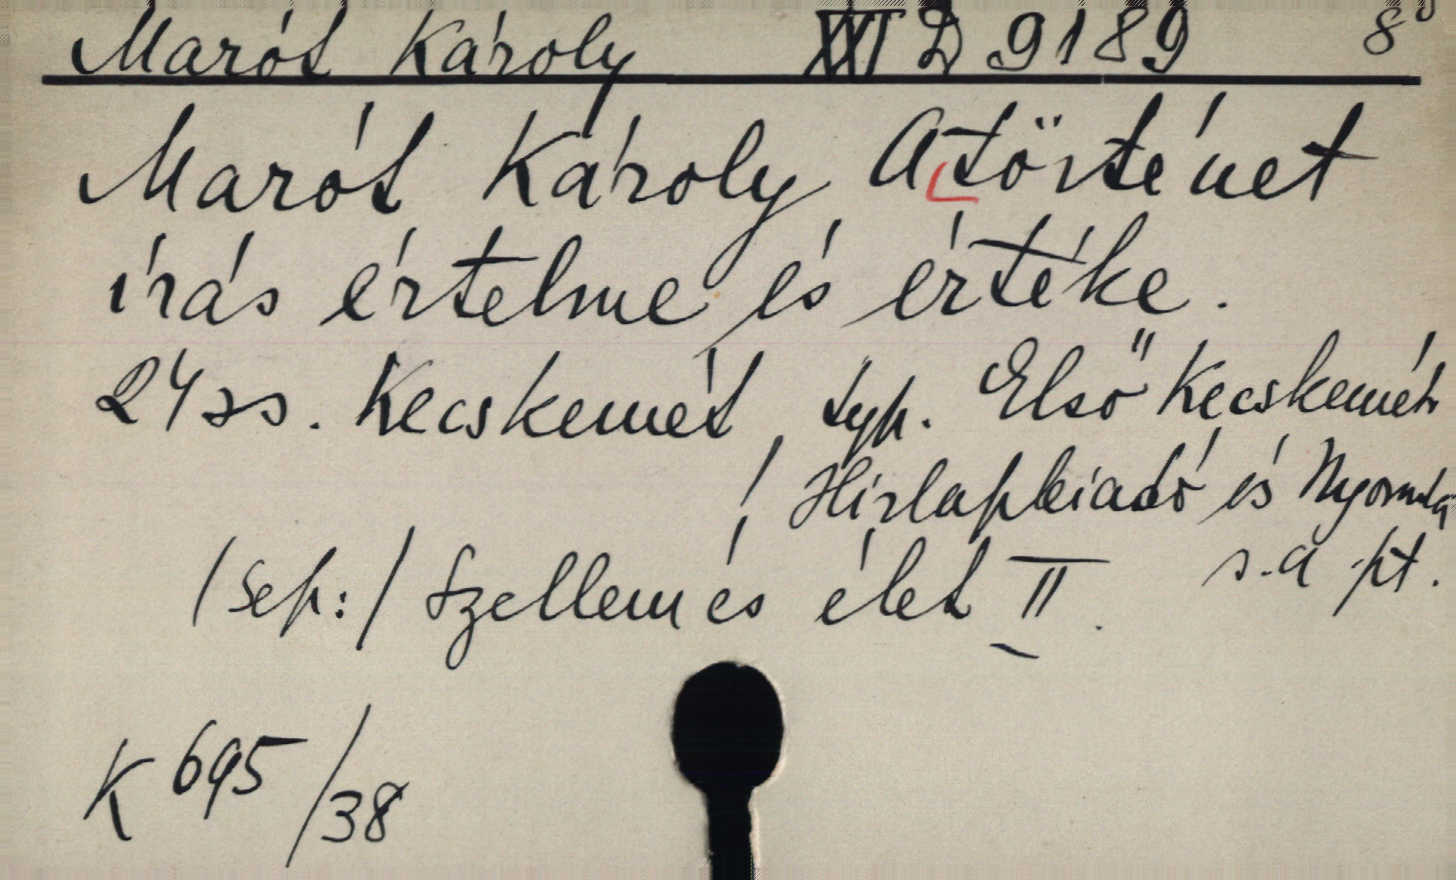 Marót Károly XXI D 9189 8°
Marót Károly A történet
írás értelme és értéke.
24 ss. Kecskemét, typ. Első Kecskeméti
Hirlapkiadó és Nyomda
(Sep:) Szellem és élet II. s.a. pt.
K 695/38